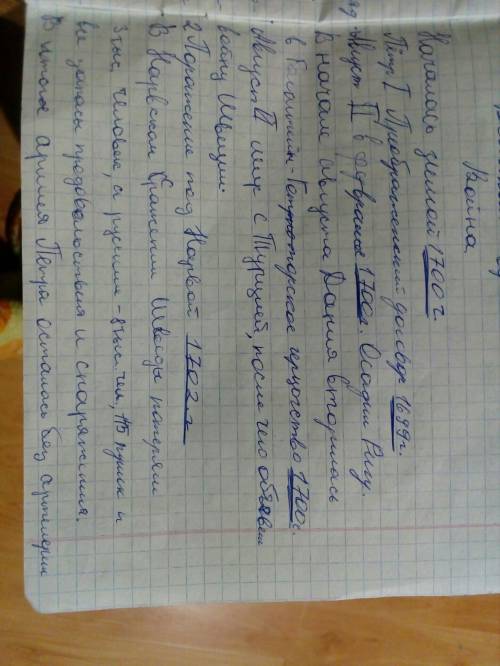 Война
Началась зимой 1700 г.
Пётр I Преображенский договор 1699 г.
Август II в феврале 1700 г. Осадил Ригу.
В начале августа Дания вторглась
в Голштейн-Готторпское герцотство 1700 г.
Август II мир с Турцией, после чего объявет
войну Швеции.
2 Поражение под Нарвой 1702 г
В Нарвском сражении Шведы потеряли
3 тыс. человек, а русские - 8 тыс. чел, 145 пушек и
все запасы продовольствия и снаряжения.
В итоге армия Петра осталось без артилерии